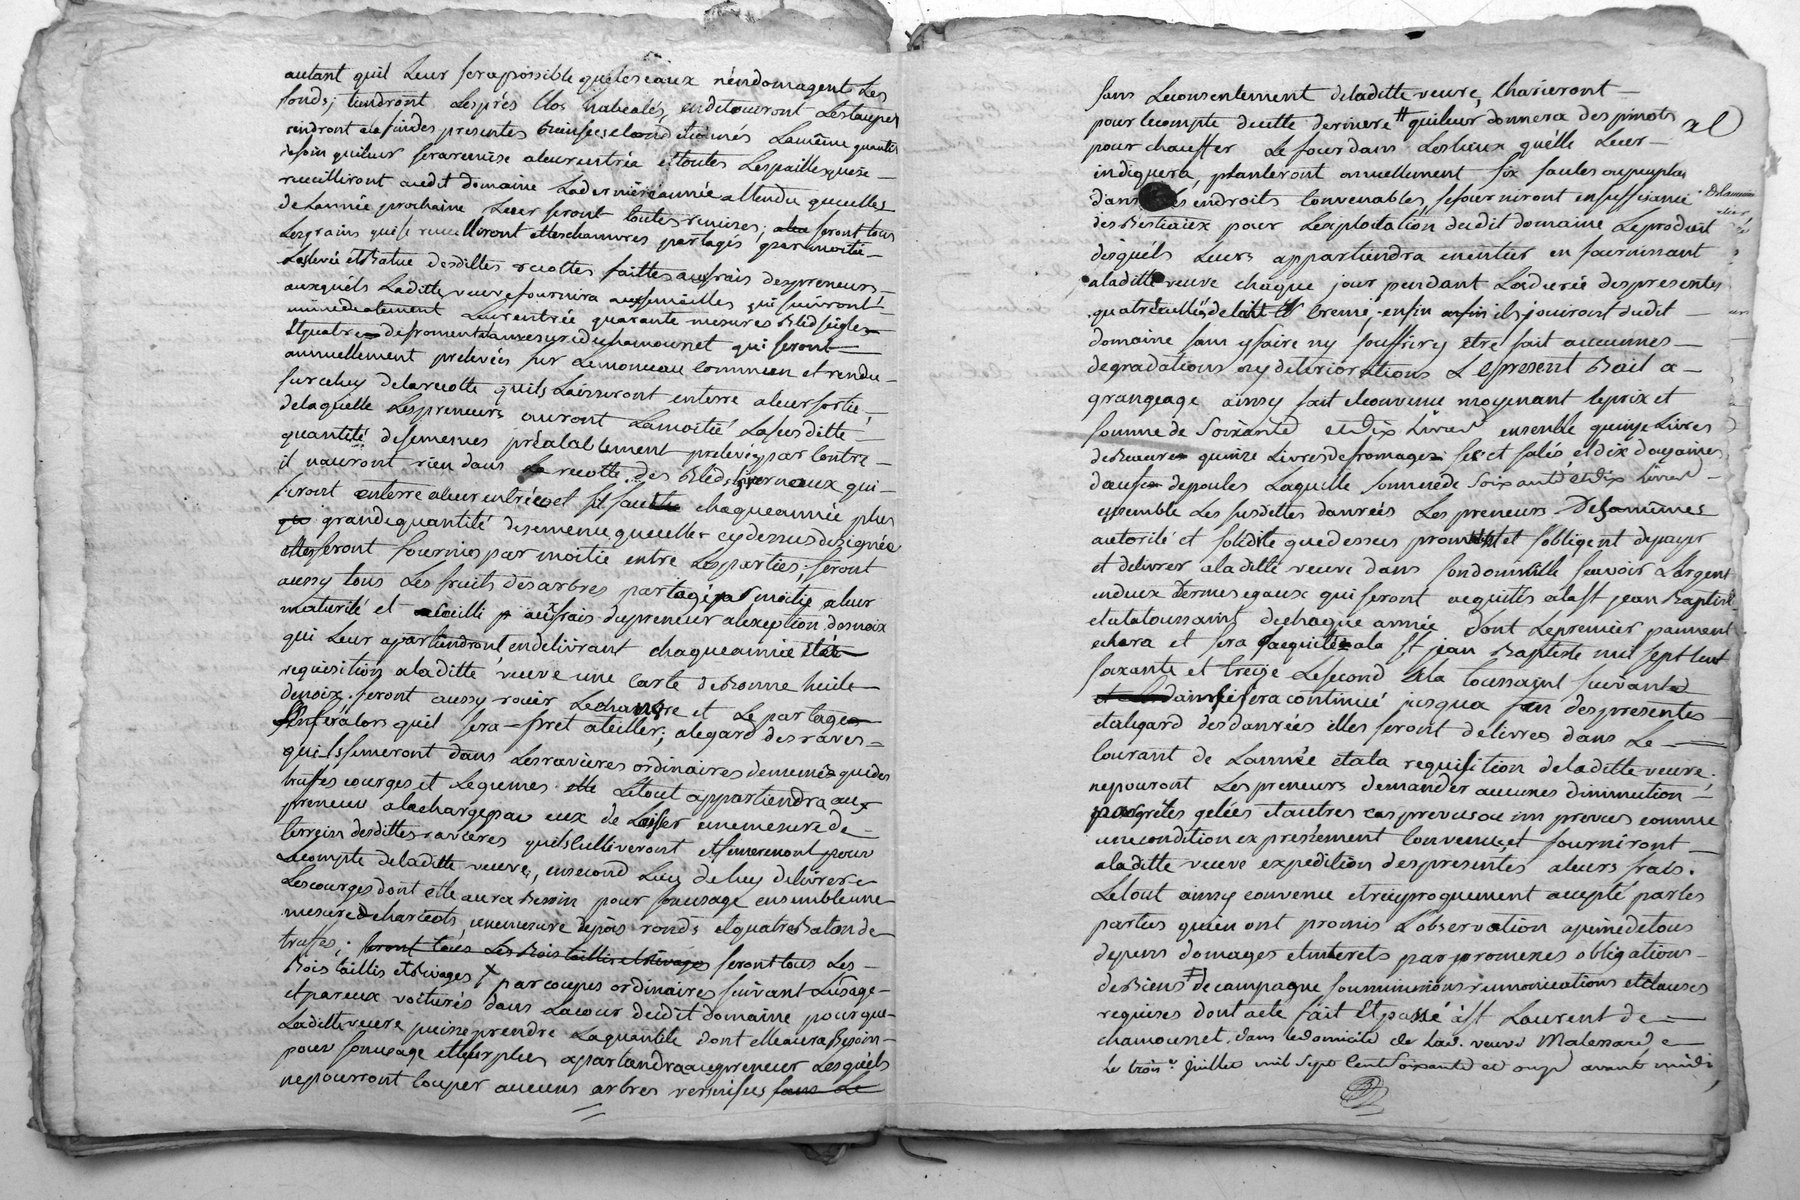 autant quil Leur sera possible que les eaux n'endomagent Les
fonds; tiendront Les prés Clos
rendront a la fin des presentes La même quantité
de foin qui leur sera remise a leur entrée et toutes Les pailles qui se
recuilliront audit domaine La derniere année attendu que celles
de Lannée prochaine Leur seront toutes remises; seront tous
Les grains qui se recuelliront et les chanvres partagés par moitié
La levée et Batue desdittes recoltes faittes aux frais des preneurs
auxquels Laditte veuve fournira aux semailles qui suivront
immediatement Leur entrée quarante mesures Bled seigle
et quatre de froment a la mesure du chamousset qui seront
annuellement prelevés sur Le monceau commun et rendu
sur celuy de la recolte quils Laisseront en terre a leur sortie,
de laquelle Les preneurs auront La moitié La susditte
quantité de semences préalablement prelevée par contre
il nauront rien dans La recolte des Bleds hivernaux qui
seront en terre a leur entrée et sil faut chaque année plus
grande quantité de semence que celle cy dessus designée
elles seront fournies par moitié entre Les parties; seront
aussy tous Les fruits des arbres partagés par moitié a leur
maturité et aux frais du preneur a lexeption des noix
qui Leur apartiendront en delivrant chaque année et a
requisition a laditte veuve une carte de Bonne huile
de noix. seront aussy roüir Le chanvre et Le partage
sen fera lors quil sera pret a teiller; a legard des raves
quils semeront dans Les ravieres ordinaires de meme que des
truffes courges et Legumes Le tout appartiendra aux
preneurs a la charge par eux de Laisser une mesure de
terrein desdittes ravieres quils cultiveront et semeront pour
Le compte de laditte veuve, en second Lieu de luy delivrer
Les courges dont elle aura Besoin pour son usage ensemble une
mesure d haricots, une mesure de pois ronds et quatre Bataux de
trufes; seront tous Les Bois taillis et Rivages seront tous Les
Bois taillis et Rivages par coupes ordinaires suivant Lusage
et par eux voiturés dans La cour dudit domaine pour que
Laditte veuve puisse prendre La quantité dont elle aura Besoin
pour son usage et le surplus apartiendra au preneur Lesquels
ne pourront couper aucuns arbres vers ni secs sans Le
sans Le consentement de laditte veuve, Charieront
pour le compte de cette derniere qui leur donnera des pinots
pour chauffer Le four dans Les Lieux quelle Leur
indiquera, planteront annuellement six saules ou peuples
dans Les endroits convenables, se fourniront en suffisance
des Bestiaux pour Lexploitation dudit domaine Le produit
desquels Leurs appartiendra en entier en fournissant
a laditte veuve chaque jour pendant La durée des presentes
de lait enfin ils jouiront dudit
domaine sans y faire ny souffrir y être fait aucunes
degradations ny deteriorations Le present Bail a
grangeage ainsy fait et convenu moyenant le prix et
somme de Soixante et dix Livres ensemble quinze Livres
de Beaure quinze Livres de fromage sec et salés, et dix douzaines
d'œufs de poules Laquelle somme de Soixante et dix Livres
ensemble Les susdittes danrées Les preneurs De la meme
autorité et solidité que dessus promettent et s'obligent de payer
et delivrer a laditte veuve dans son domicille scavoir L'argent
en deux termes egaux qui seront acquités a la St jean Baptiste
et a la toussaint de chaque année dont Le premier paiment
echera et sera acquité a la St jean Baptiste mil sept cent
soixante et treize Le second a la toussaint suivante
et ainsi sera continué jusqua fin des presentes
et a legard des danrées elles seront delivrés dans Le
courant de Lannée et a la requisition de laditte veuve,
ne pouront Les preneurs demander aucunes diminution
par greles gelées et autres cas prevus ou im prevus comme
une condition expressément convenue, et fourniront
a laditte veuve expedition des presentes a leurs frais.
Le tout ainsy convenu et reciproquement accepté par les
parties qui en ont promis L'observation a peine de tous
depens domages et interets par promesses obligations
de Biens de campagne soummissions renonciations et clauses
requises dont acte fait et passé a St Laurent de
chamousset. dans le domicile de Lad. veuve
Le trois.e juillet mil sept cent soixante et onze avant midi